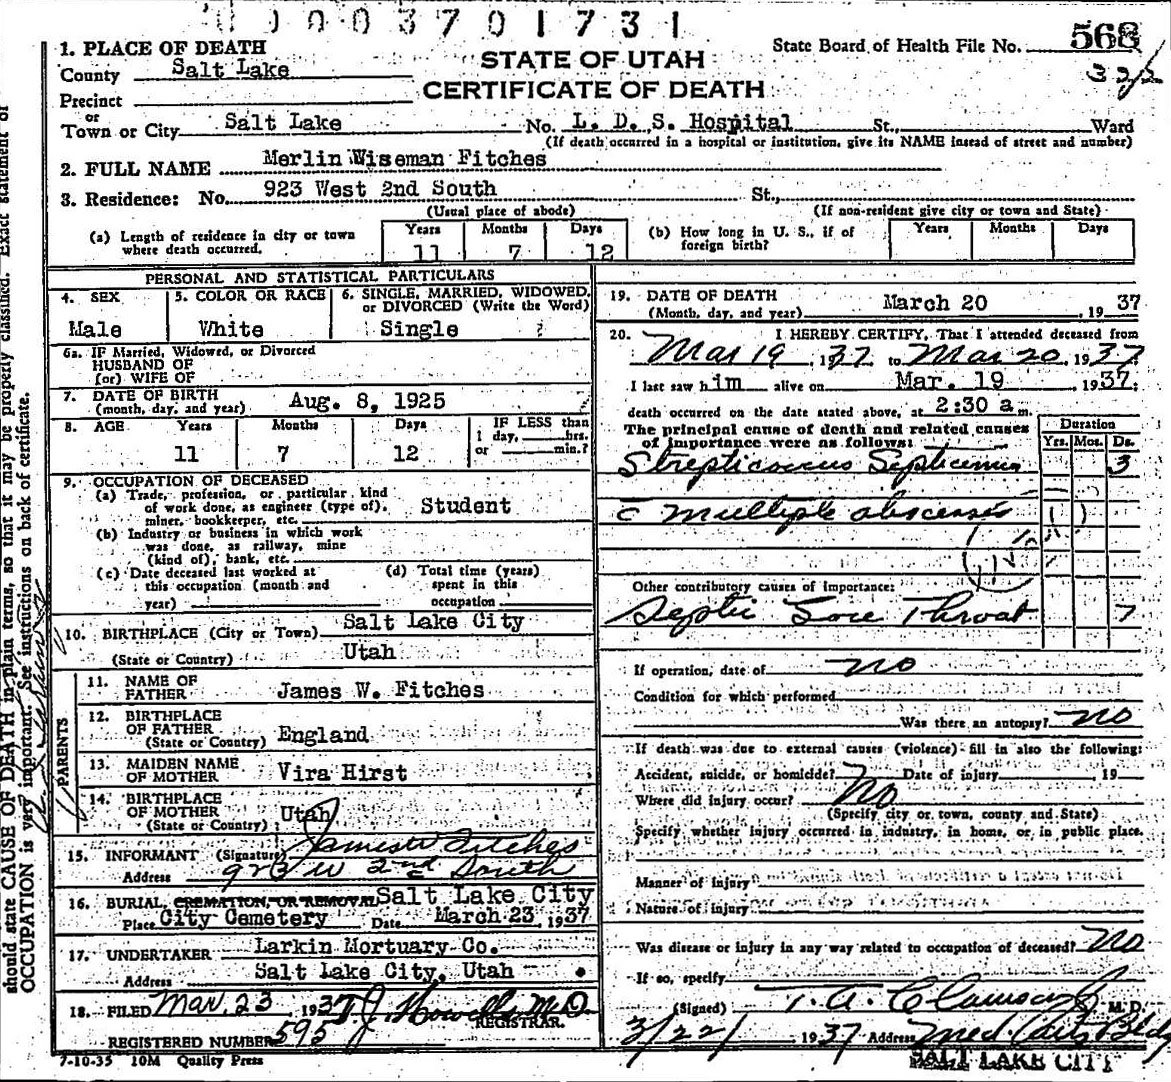 0003701731
1. PLACE OF DEATH
County Salt Lake
Precinct
or
Town or City Salt Lake No. L. D. S. Hospital St., Ward
(If death occurred in a hospital or institution, give its NAME instead of street and number)
STATE OF UTAH
CERTIFICATE OF DEATH
State Board of Health File No. 568
2. FULL NAME Merlin Wiseman Fitches
3. Residence: No. 923 West 2nd South St.,
(Usual place of abode) (If non-resident give city or town and State)
(a) Length of residence in city or town where death occurred. Years 11 Months 7 Days 12
(b) How long in U. S., if of foreign birth? Years Months Days
PERSONAL AND STATISTICAL PARTICULARS
4. SEX Male
5. COLOR OR RACE White
6. SINGLE, MARRIED, WIDOWED, or DIVORCED (Write the Word) Single
6a. IF Married, Widowed, or Divorced
HUSBAND OF
(or) WIFE OF
7. DATE OF BIRTH
(month, day, and year) Aug. 8, 1925
8. AGE Years 11 Months 7 Days 12
IF LESS than
1 day, hrs.
or min.?
9. OCCUPATION OF DECEASED
(a) Trade, profession, or particular kind
of work done, as engineer (type of),
miner, bookkeeper, etc. Student
(b) Industry or business in which work
was done, as railway, mine
(kind of), bank, etc.
(c) Date deceased last worked at
this occupation (month and
year)
(d) Total time (years)
spent in this
occupation
10. BIRTHPLACE (City or Town) Salt Lake City
(State or Country) Utah
PARENTS
11. NAME OF
FATHER James W. Fitches
12. BIRTHPLACE
OF FATHER
(State or Country) England
13. MAIDEN NAME
OF MOTHER Vira Hirst
14. BIRTHPLACE
OF MOTHER
(State or Country) Utah
15. INFORMANT (Signature) James W Fitches
Address 923 W 2nd South
16. BURIAL, CREMATION, OR REMOVAL Salt Lake City
Place City Cemetery Date March 23, 1937
17. UNDERTAKER Larkin Mortuary Co.
Address Salt Lake City, Utah
18. FILED Mar 23 1937 T J Howells M.D.
REGISTRAR.
REGISTERED NUMBER 595
7-10-35 10M Quality Press
19. DATE OF DEATH
(Month, day, and year) March 20, 1937
20. I HEREBY CERTIFY, That I attended deceased from
Mar 19, 1937 to Mar 20, 1937
I last saw him alive on Mar. 19 1937;
death occurred on the date stated above, at 2:30 a m.
The principal cause of death and related causes
of importance were as follows:
Duration
Yrs. Mos. Ds.
Strepticoccus Septicemia 3
c̄ multiple abscesses
Other contributory causes of importance:
Septic Sore Throat 7
If operation, date of no
Condition for which performed
Was there an autopsy? no
If death was due to external causes (violence) fill in also the following:
Accident, suicide, or homicide? Date of injury 19
No
Where did injury occur?
(Specify city or town, county and State)
Specify whether injury occurred in industry, in home, or in public place.
Manner of injury
Nature of injury
Was disease or injury in any way related to occupation of deceased? No
If so, specify
(Signed) T. A. Clawson Jr M. D.
3/22/ 1937 Address Med. Arts Bldg
SALT LAKE CITY
should state CAUSE OF DEATH in plain terms, so that it may be properly classified. Exact statement of
OCCUPATION is very important. See instructions on back of certificate.